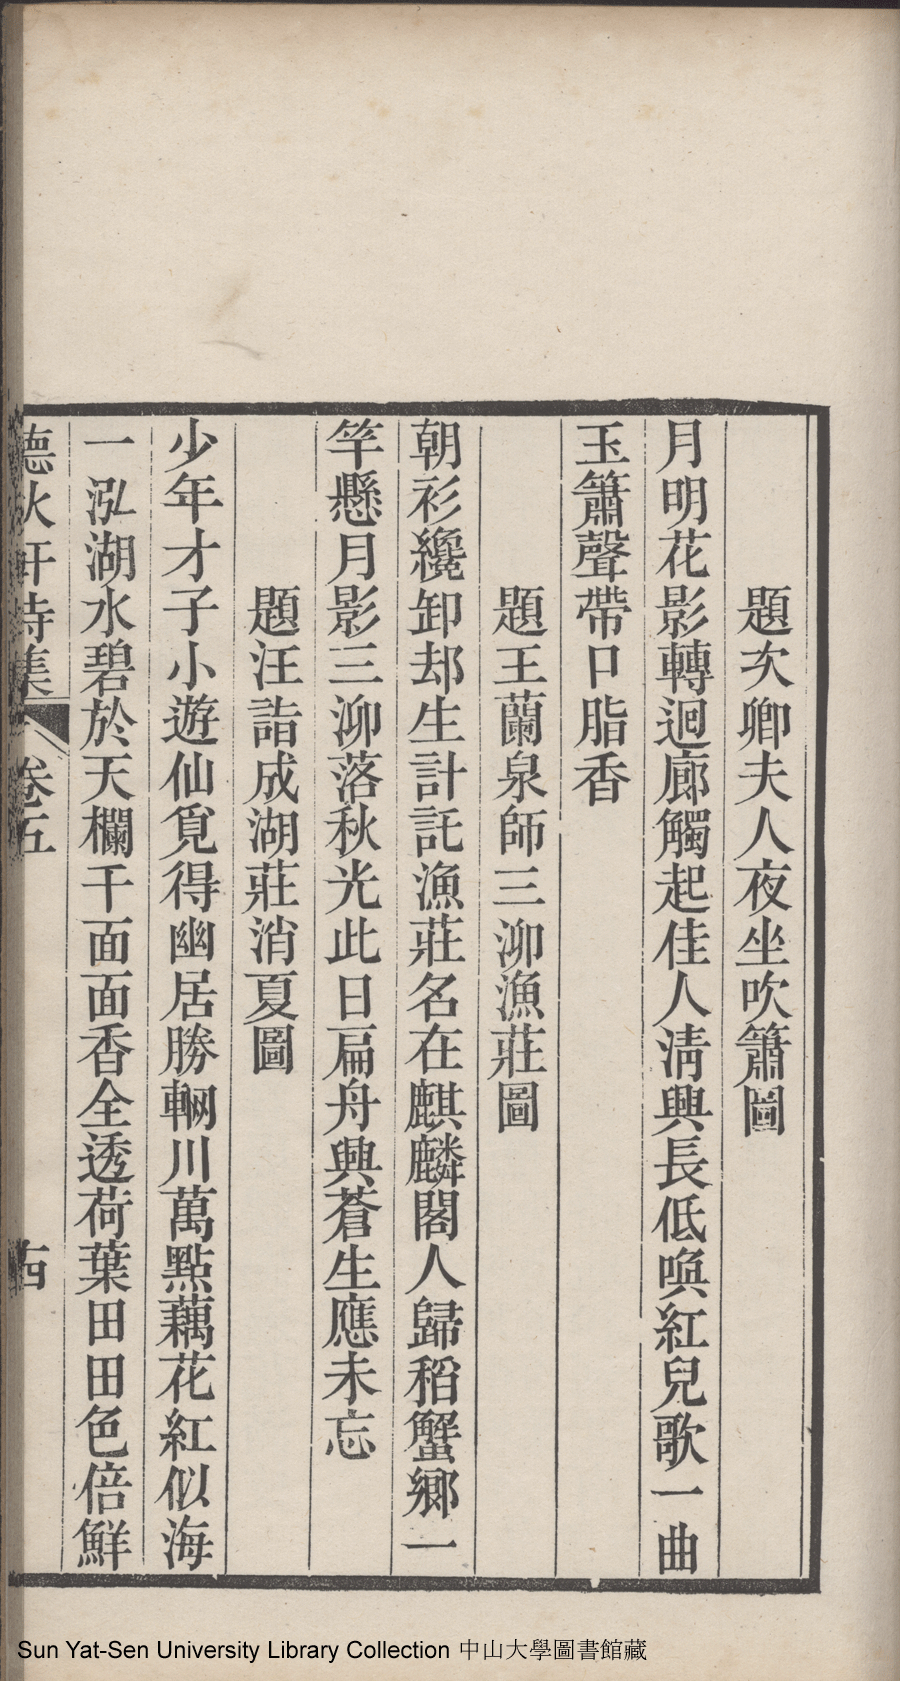 題次卿夫人夜坐吹簫圖
月明花影轉迴廊觸起佳人淸興長低喚紅兒歌一曲
玉簫聲帶口脂香
題王蘭泉師三泖漁莊圖
朝衫纔卸却生計託漁莊名在麒麟閣人歸稻蟹鄉一
竿懸月影三泖落秋光此日扁舟興蒼生應未忘
題汪詣成湖莊消夏圖
少年才子小遊仙覓得幽居勝輞川萬點藕花紅似海
一泓湖水碧於天欄干面面香全透荷葉田田色倍鮮
德火軒詩集 卷五
Sun Yat-Sen University Library Collection 中山大學圖書館藏